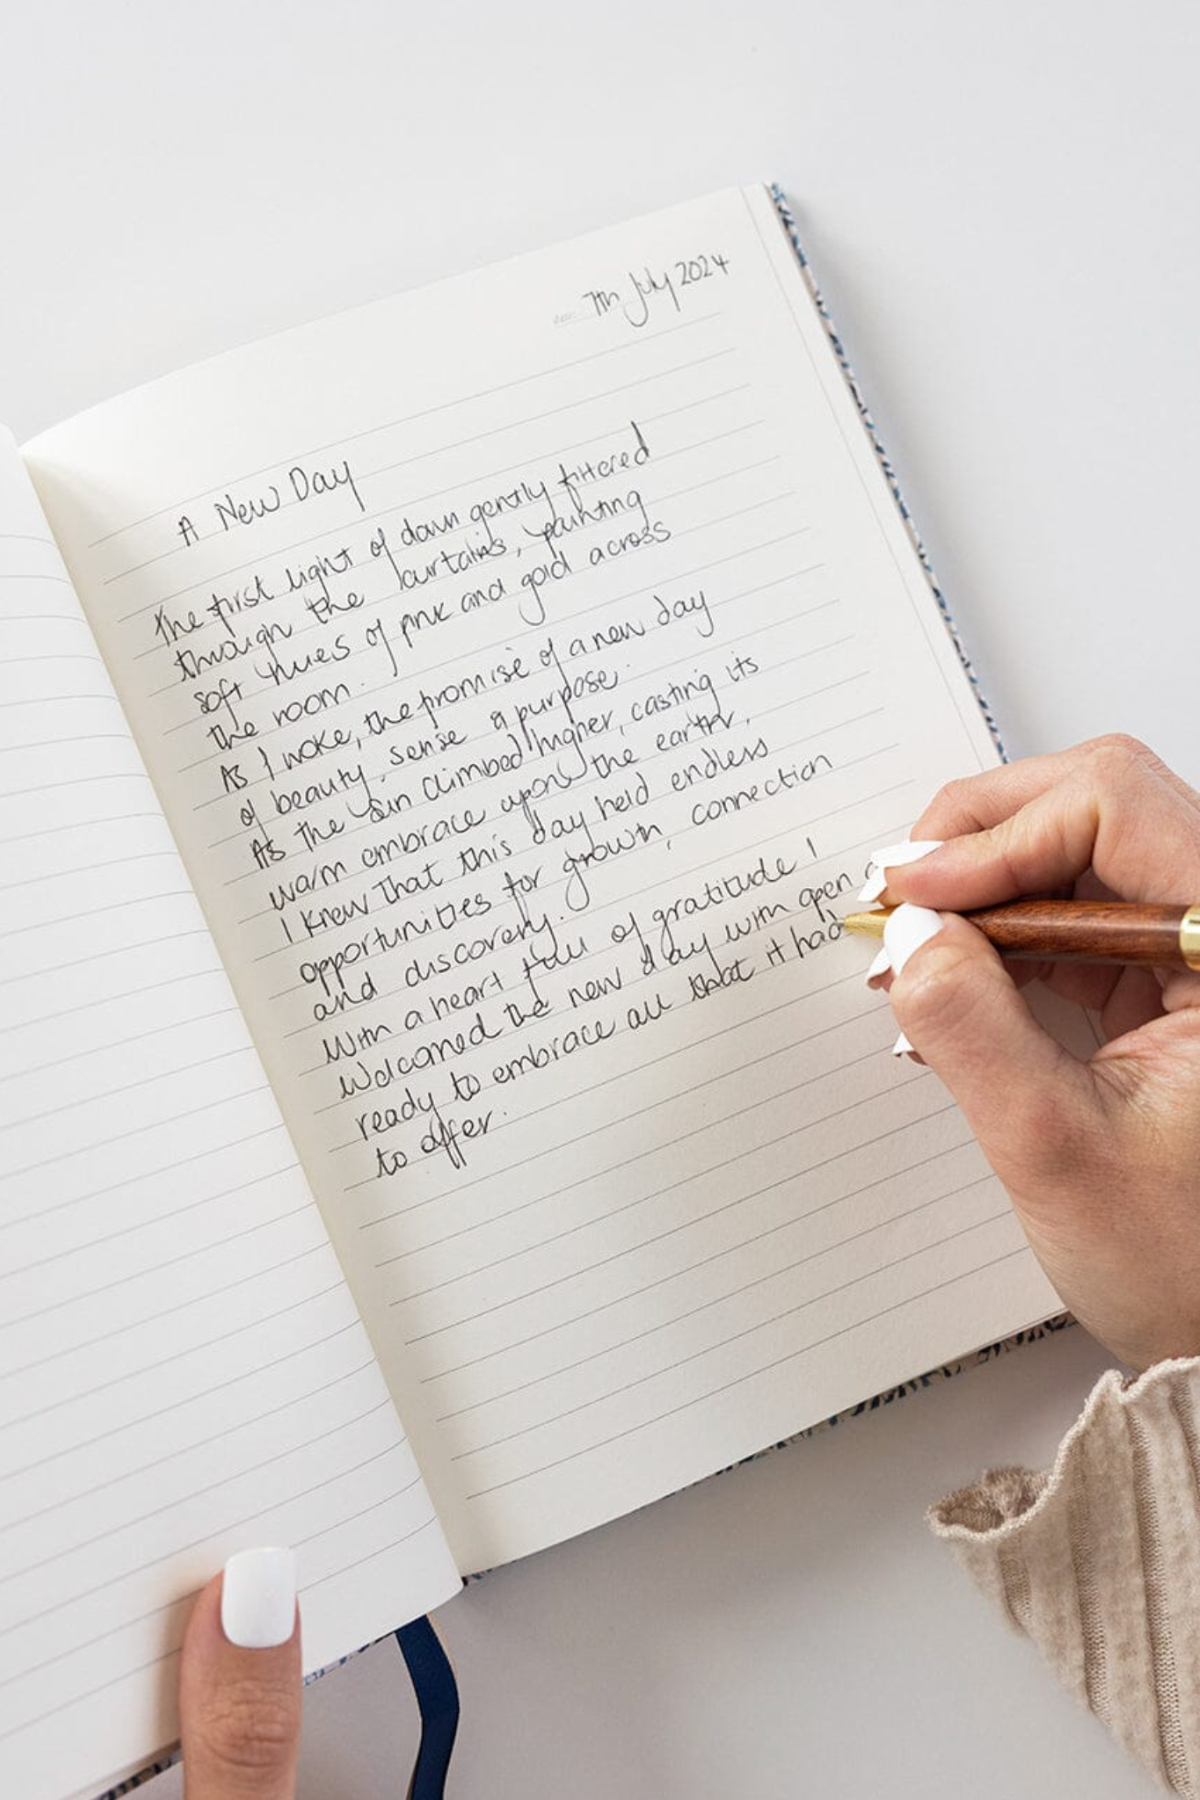 7th July 2024
A New Day
The first light of dawn gently filtered
through the curtains, painting
soft hues of pink and gold across
the room.
As I woke, the promise of a new day
of beauty, sense a purpose.
As the sun climbed higher, casting its
warm embrace upon the earth,
I knew that this day held endless
opportunities for growth, connection
and discovery.
With a heart full of gratitude I
welcomed the new day with open
ready to embrace all that it had
to offer.